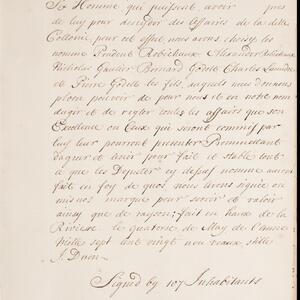 Se Homme que puissent avoir pres
de luy pour decider des affaires de la ditte
Collonie, pour cet effet nous avons choisy, les
nomme Prudent Robichaux Alexander Robichaux
Nicholas Gautier Bernard Godett Charles Landry
et Pierre Godett le fils, auquels nous donnons
plein pouvoir de pour nous et en notre nom
d'agir et de regler toutes les affaires que son
Excellence ou Ceux qui seront commis par
luy leur pourront presenter Promettant
d'agreer et avoir pour fait et stable tout
ce que les Deputez cy desus nomme auront
fait en foy de quoy nous avons signée ou
mis nos marque pour servir et valoir
ainsy que de raison; fait en haut de la
Riviere le quatorse de May de l'annee
Mille sept cent vingt nouveaux stille
J. Duon
Sign'd by 107 Inhabitants